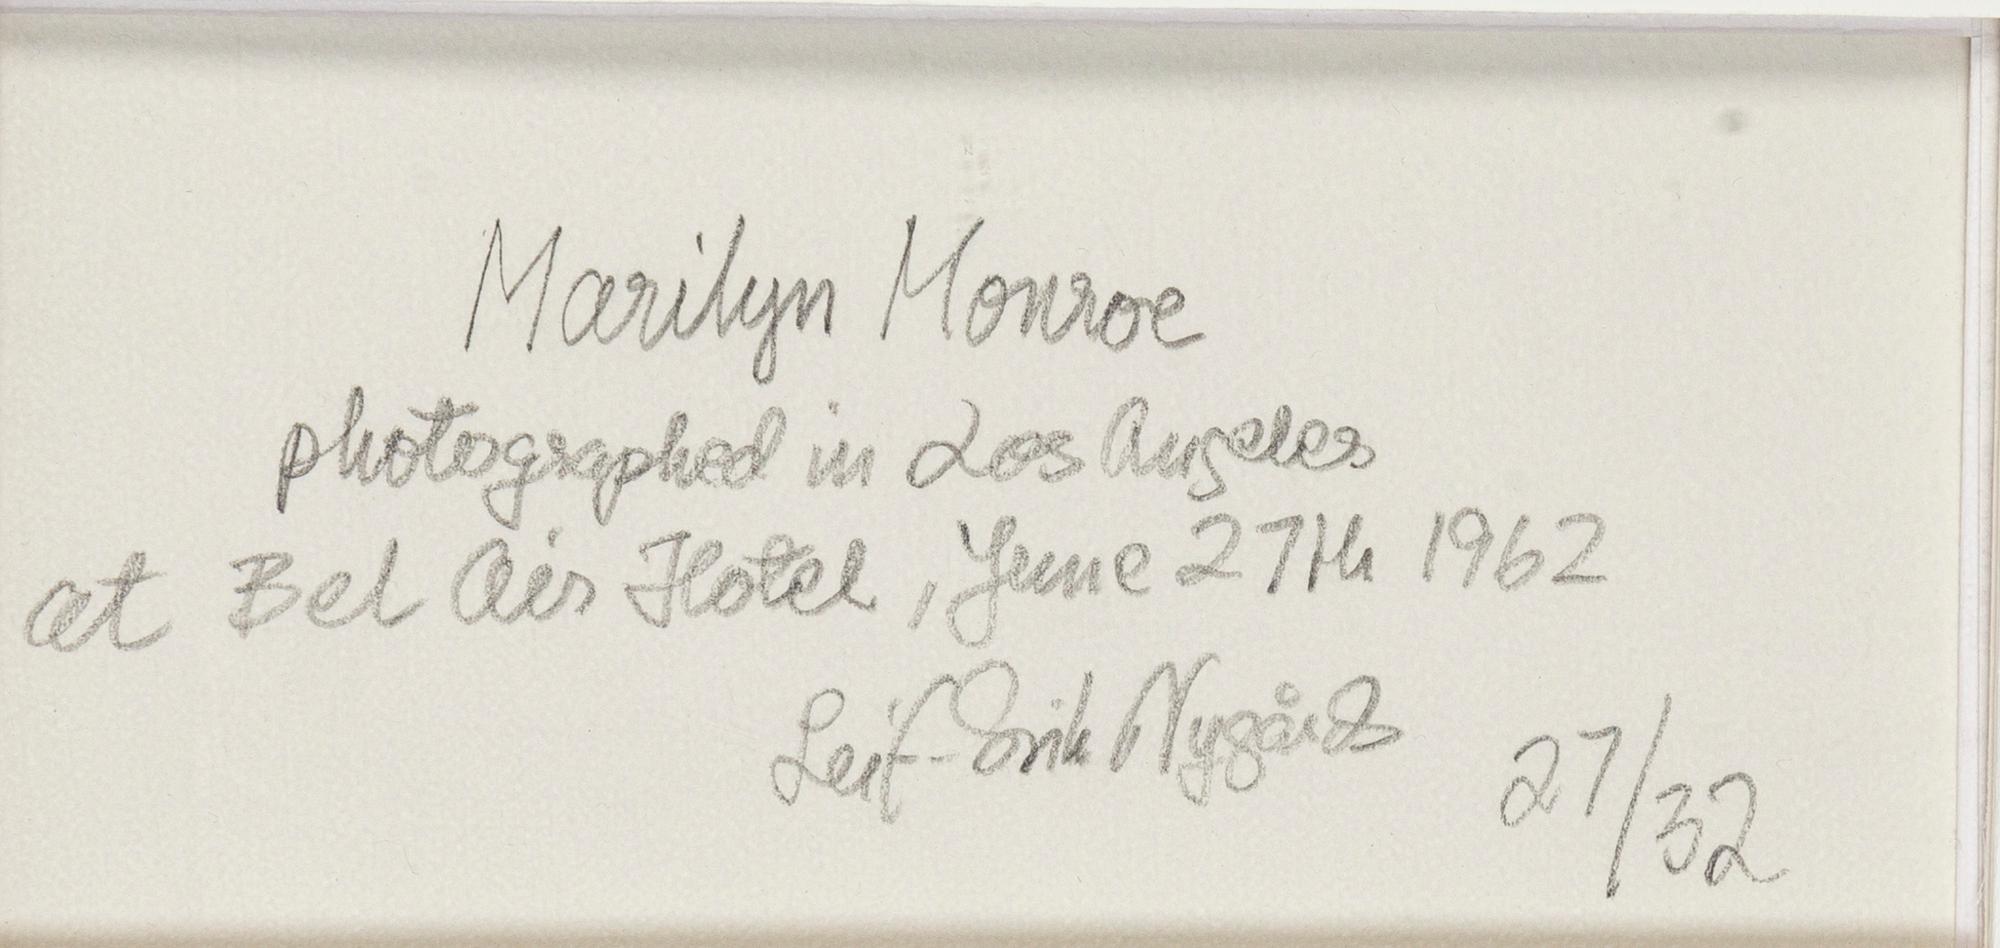 Marilyn Monroe
photographed in Los Angeles
at Bel Air Hotel, June 27th 1962
Leif-Erik Nygårds 27/32